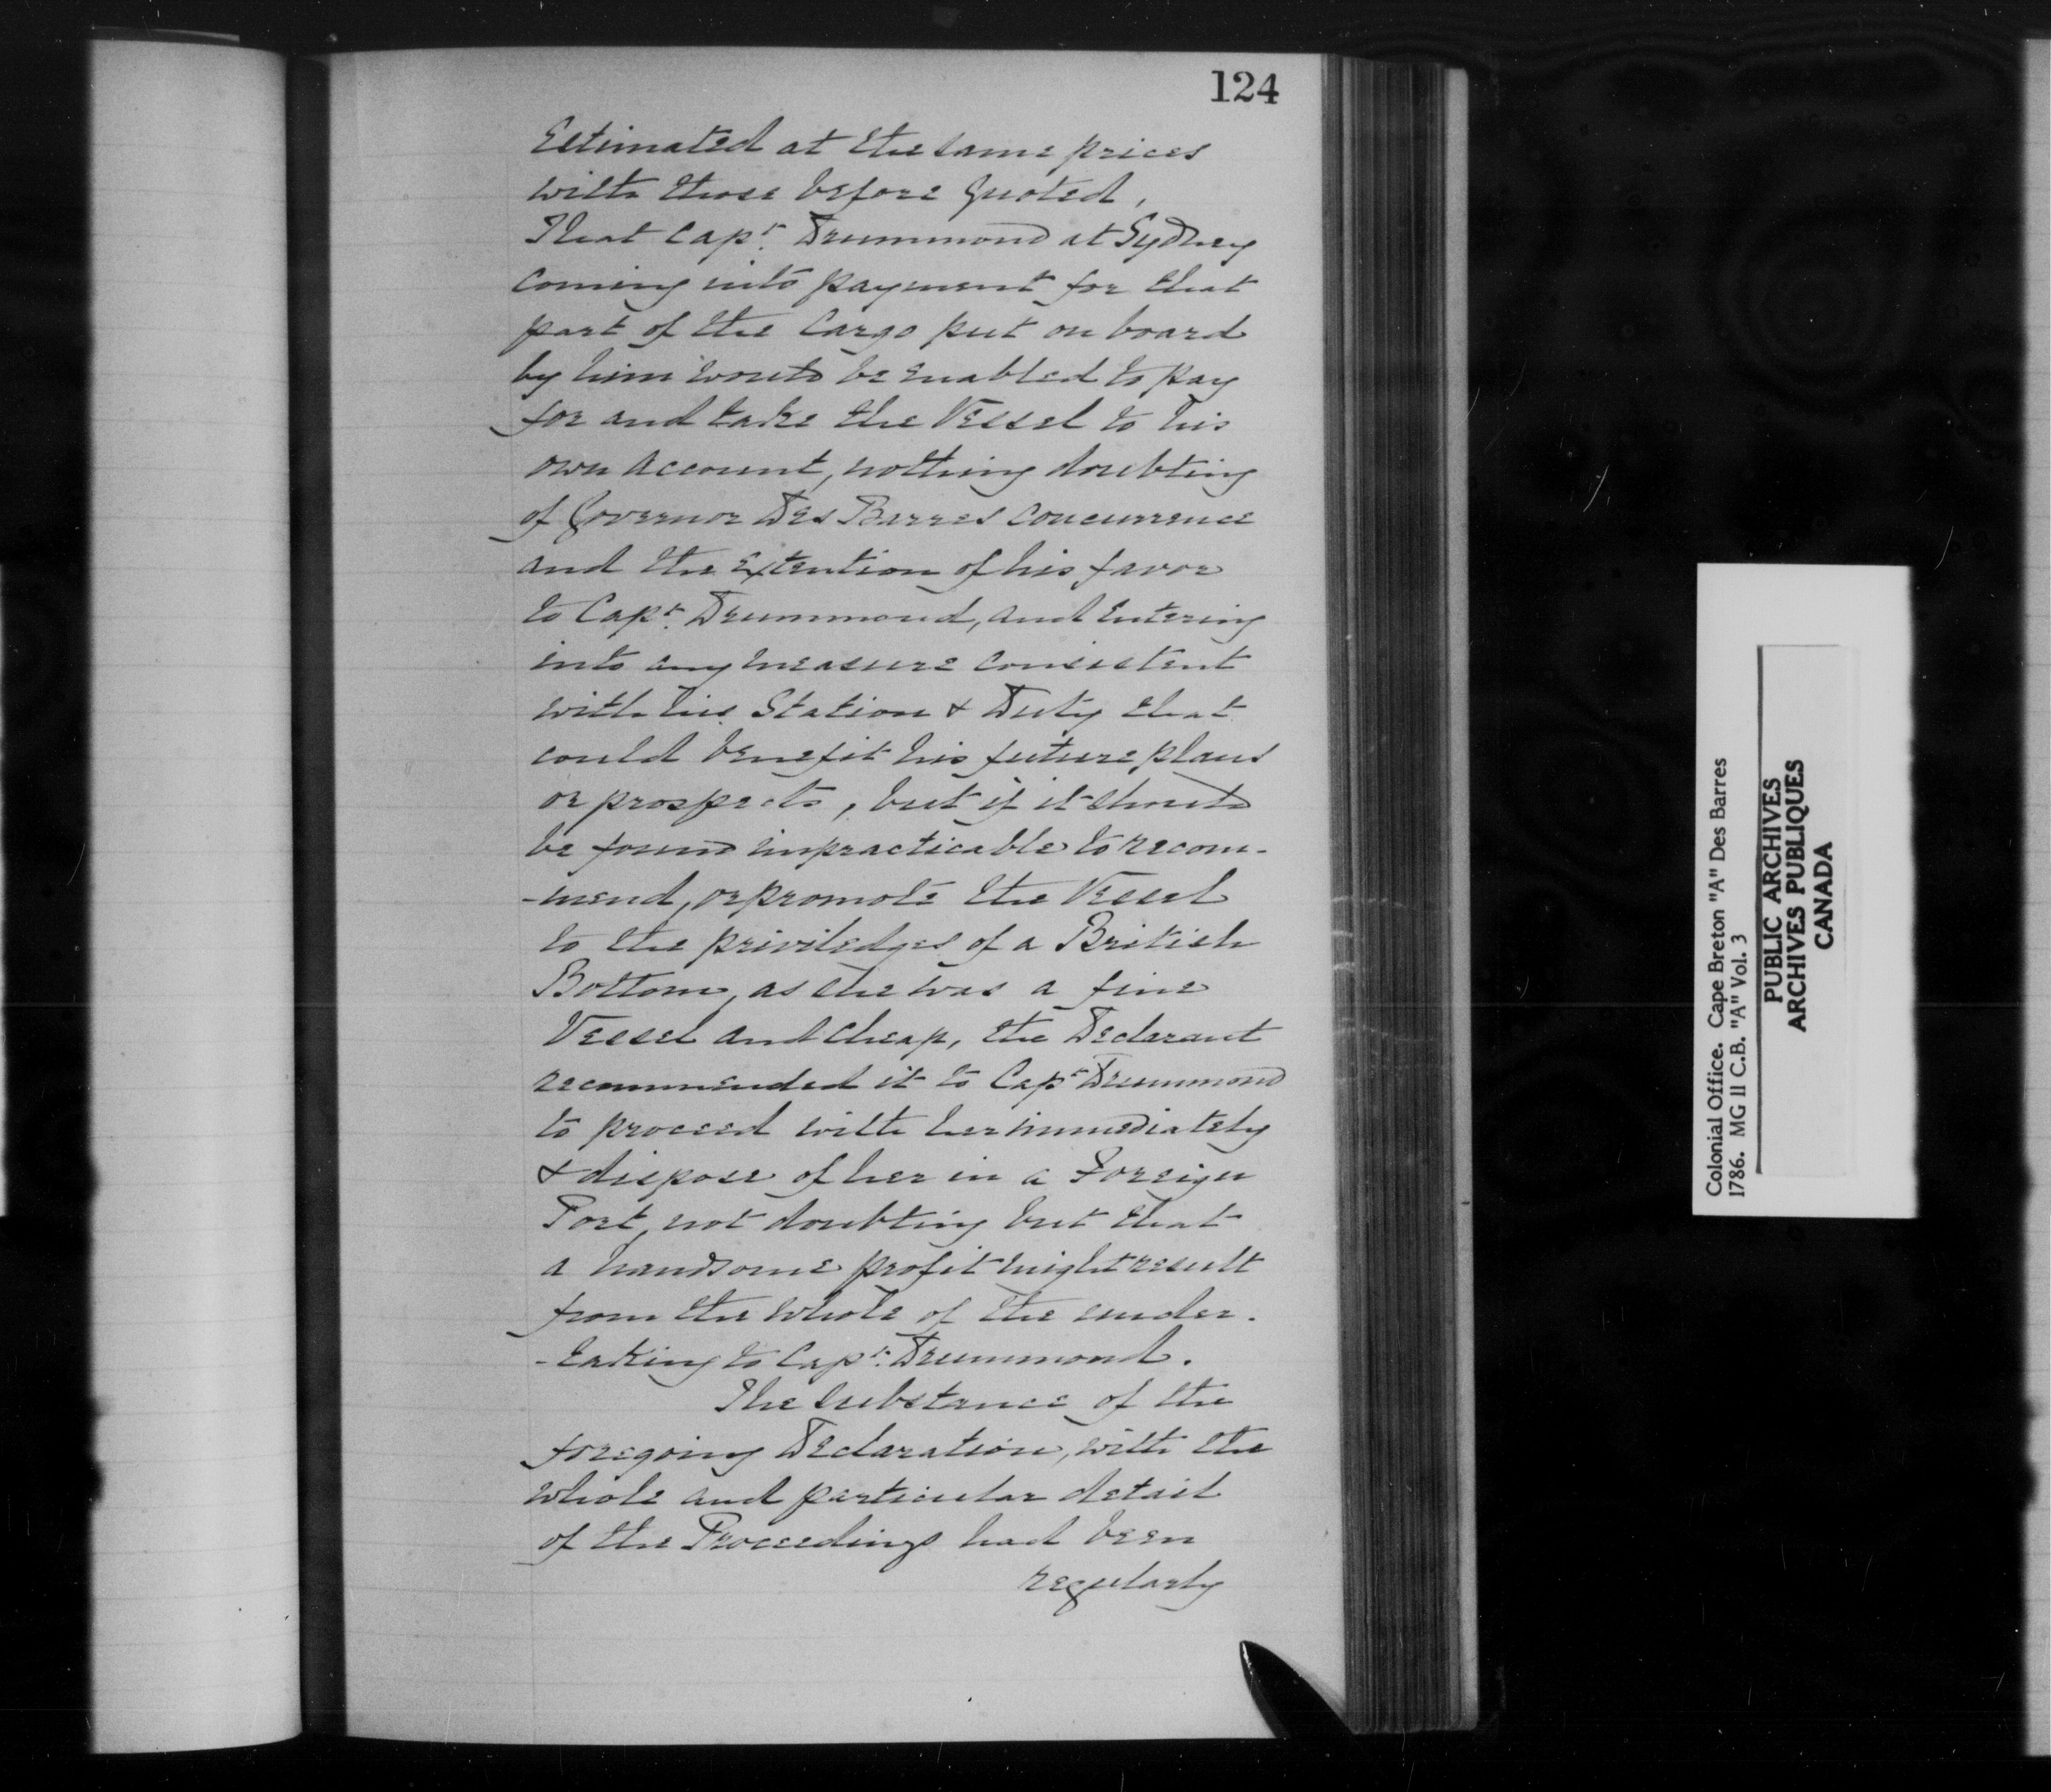 124
Estimated at the same prices
with those before quoted,
That Capt. Drummond at Sydney
coming into payment for that
part of the Cargo put on board
by him would be enabled to pay
for and take the Vessel to his
own account, nothing doubting
of Governor Des Barres concurrence
and the Extention of his favor
to Capt. Drummond, and Entering
into any measure consistent
with his Station & Duty that
could benefit his future plans
or prospects, but if it should
be found impracticable to recom-
-mend, or promote the Vessel
to the priviledges of a British
Bottom, as she was a fine
Vessel and cheap, the Declarant
recommended it to Capt Drummond
to proceed with her immediately
& dispose of her in a Foreign
Port, not doubting but that
a handsome profit might result
from the whole of the under-
-taking to Capt. Drummond.
The substance of the
foregoing Declaration, with the
whole and particular detail
of the Proceedings had been
regularly
Colonial Office. Cape Breton "A" Des Barres
1786. MG II C.B. "A" Vol. 3
PUBLIC ARCHIVES
ARCHIVES PUBLIQUES
CANADA